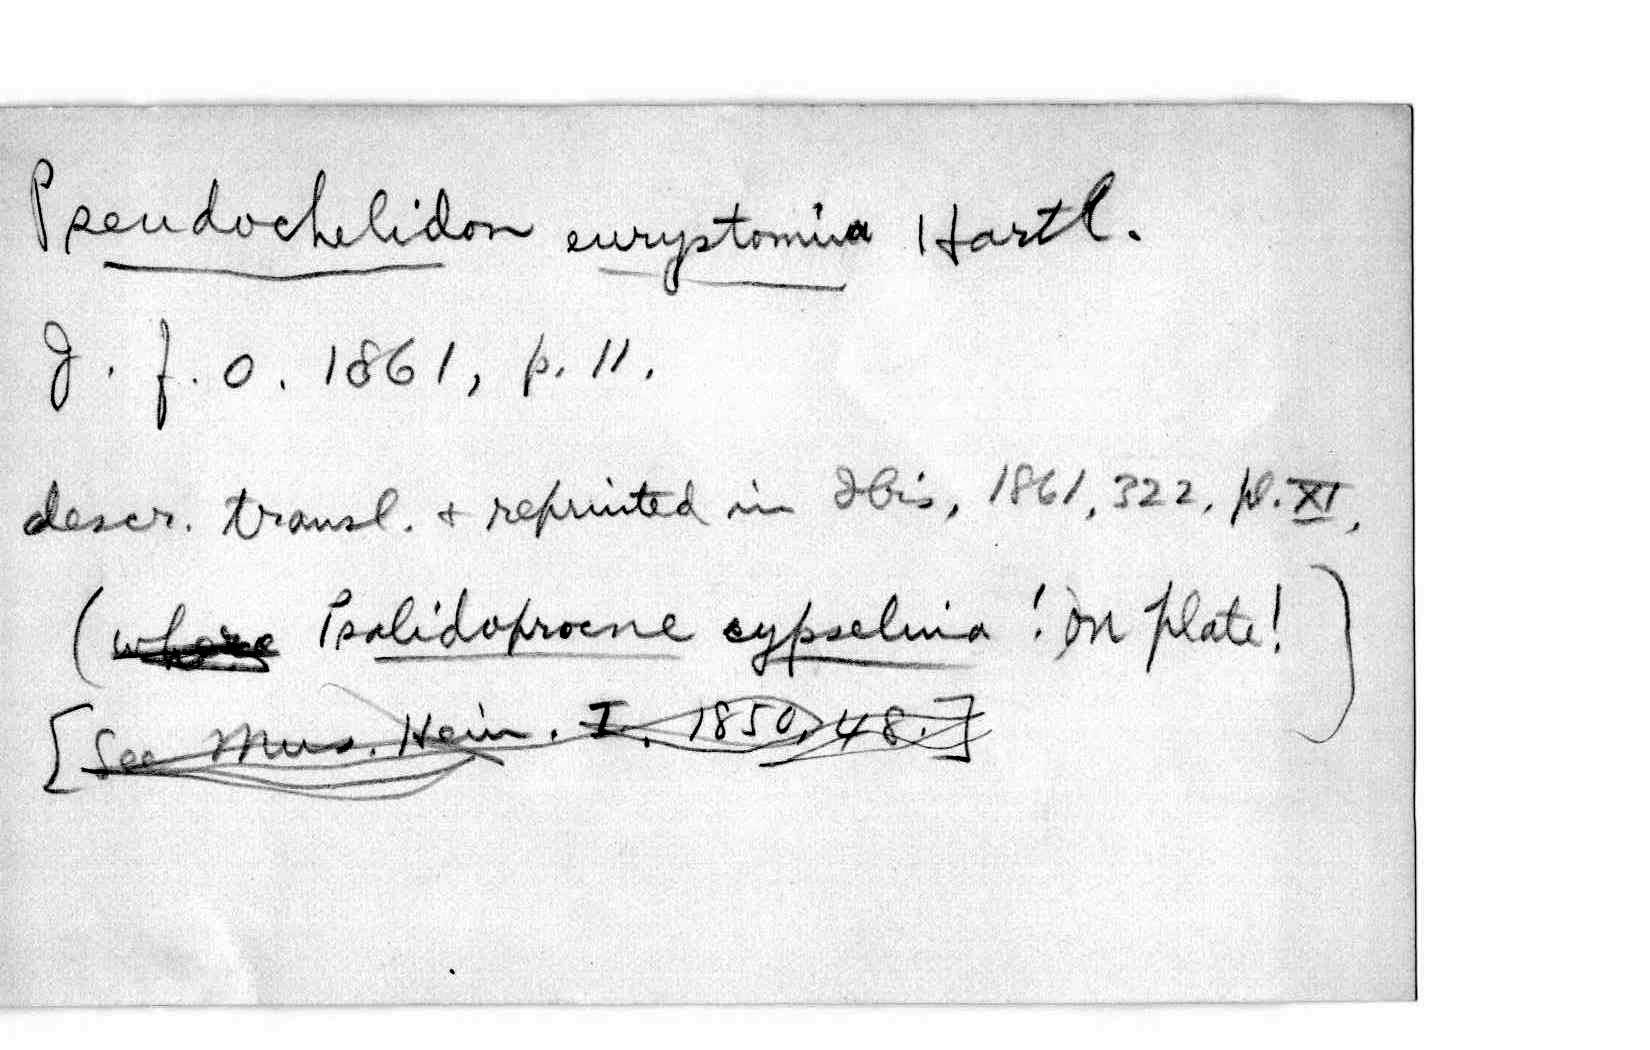 Pseudochelidon eurystomina Hartl.
J. f. O. 1861, p. 11.
descr. transl. + reprinted in Ibis, 1861, 322, pl. XI,
(where Psalidoprocne cypselina! on plate!)
[See Mus. Hein. I, 1850, 48.]